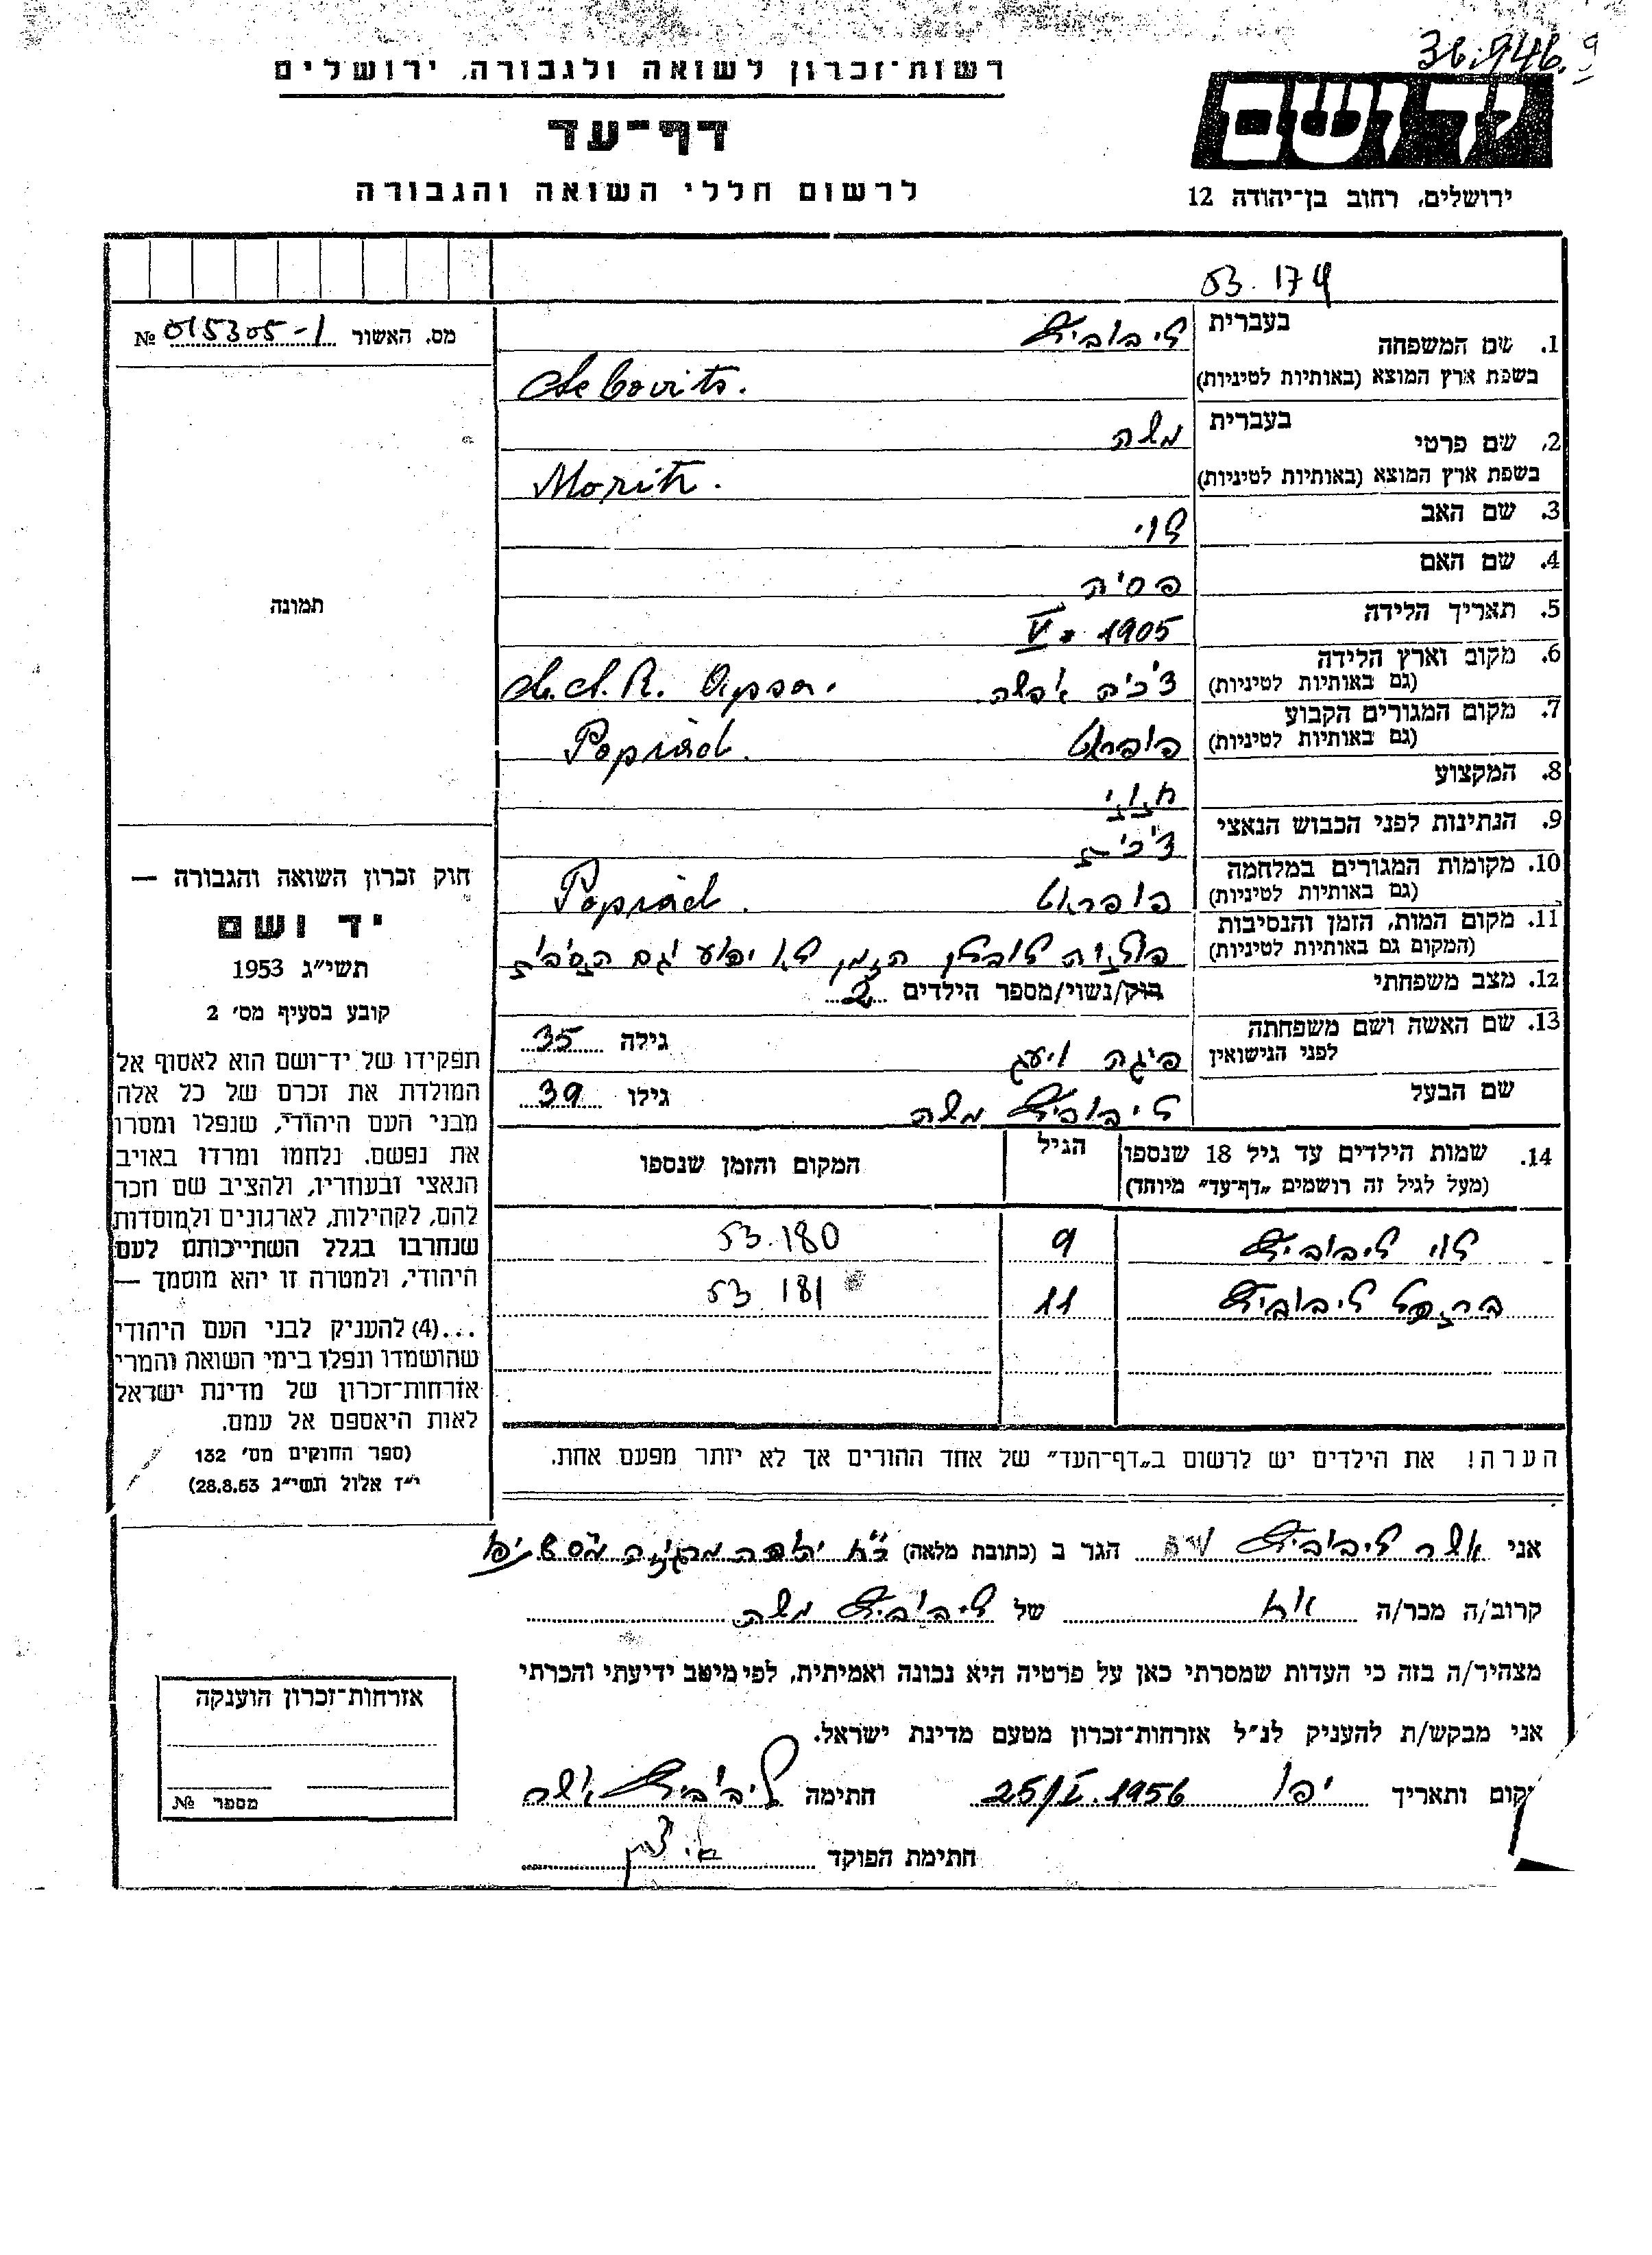 36.946.
רשות־זכרון לשואה ולגבורה, ירושלים
יד ושם
דף־עד
לרשום חללי השואה והגבורה
ירושלים, רחוב בן־יהודה 12
53.174
מס. האשור № 015305-1
1. שם המשפחה בעברית ליבוביץ
בשפת ארץ המוצא (באותיות לטיניות) Lebovits.
2. שם פרטי בעברית משה
בשפת ארץ המוצא (באותיות לטיניות) Morith.
3. שם האב לוי
4. שם האם פסיה
5. תאריך הלידה 1905 . V
6. מקום וארץ הלידה
(גם באותיות לטיניות) צ'כיה אפשה Č.S.R. Apsa.
7. מקום המגורים הקבוע
(גם באותיות לטיניות) פופראט Poprád.
8. המקצוע
9. הנתינות לפני הכבוש הנאצי צ'כית
10. מקומות המגורים במלחמה
(גם באותיות לטיניות) פופראט Poprád.
11. מקום המות, הזמן והנסיבות
(המקום גם באותיות לטיניות) לובלין הזמן לא ידוע וגם הסבות
12. מצב משפחתי רוק/נשוי/מספר הילדים 2
13. שם האשה ושם משפחתה
לפני הנישואין פיגה גילה 35
שם הבעל ליבוביץ משה גילו 39
14. שמות הילדים עד גיל 18 שנספו
(מעל לגיל זה רושמים „דף־עד” מיוחד)
הגיל
המקום והזמן שנספו
לוי ליבוביץ 9 53.180
ליבוביץ 11 53 181
הערה! את הילדים יש לרשום ב„דף־העד” של אחד ההורים אך לא יותר מפעם אחת.
תמונה
חוק זכרון השואה והגבורה —
יד ושם
תשי״ג 1953
קובע בסעיף מס׳ 2
תפקידו של יד־ושם הוא לאסוף אל
המולדת את זכרם של כל אלה
מבני העם היהודי, שנפלו ומסרו
את נפשם, נלחמו ומרדו באויב
הנאצי ובעוזריו, ולהציב שם וזכר
להם, לקהילות, לארגונים ולמוסדות
שנחרבו בגלל השתייכותם לעם
היהודי, ולמטרה זו יהא מוסמך —
...(4) להעניק לבני העם היהודי
שהושמדו ונפלו בימי השואה והמרי
אזרחות־זכרון של מדינת ישראל
לאות היאספם אל עמם.
(ספר החוקים מס׳ 132
י״ז אלול תשי״ג 28.8.53)
אני אשר ליבוביץ הגר ב (כתובת מלאה)
קרוב/ה מכר/ה אח של ליבוביץ משה
מצהיר/ה בזה כי העדות שמסרתי כאן על פרטיה היא נכונה ואמיתית, לפי מיטב ידיעתי והכרתי
אני מבקש/ת להעניק לנ״ל אזרחות־זכרון מטעם מדינת ישראל.
מקום ותאריך יפו 25/V.1956 חתימה ליבוביץ אשר
חתימת הפוקד
אזרחות־זכרון הוענקה
מספר №